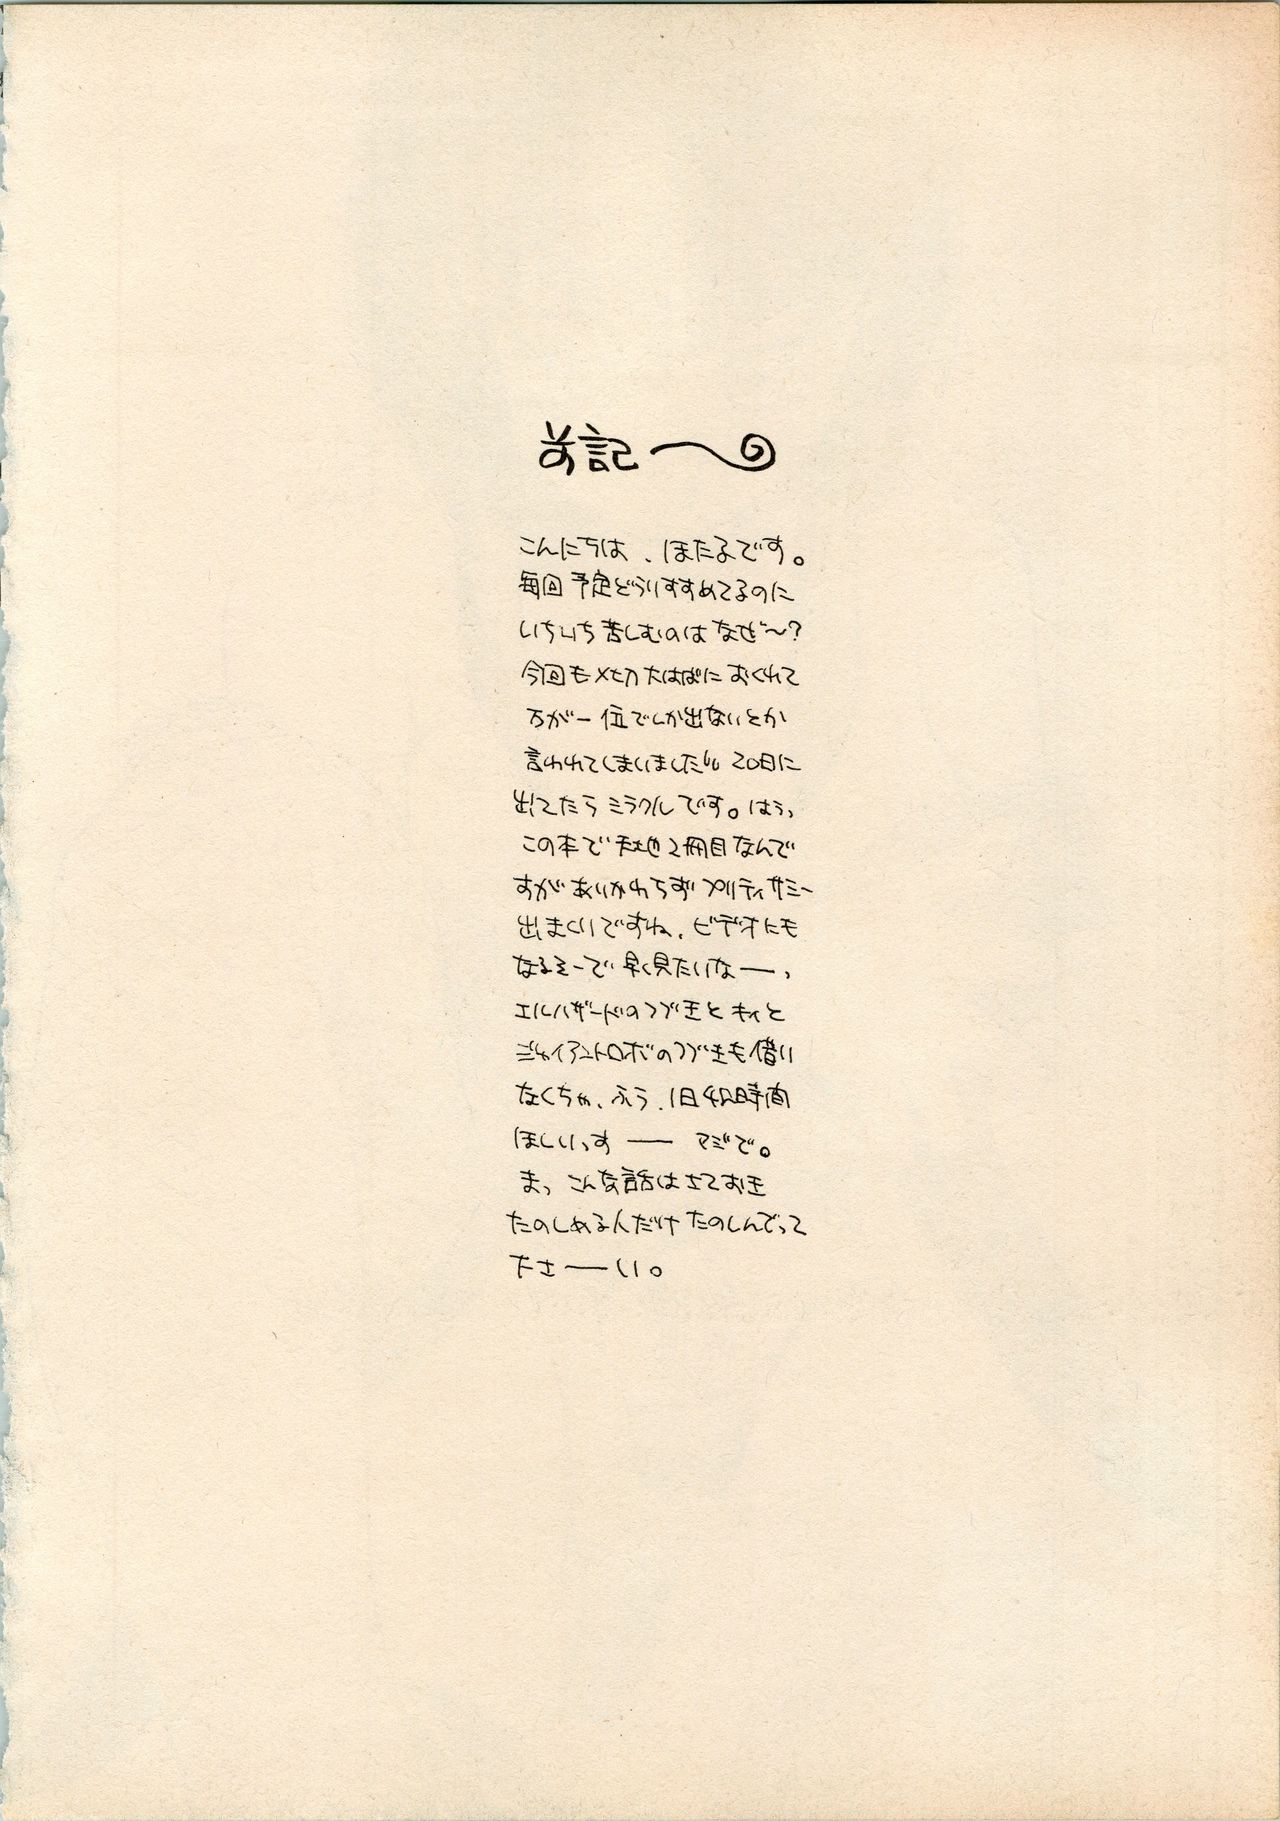 前記〜
こんにちは、ほたるです。
毎回予定どうりすすめてるのに
いちいち苦しむのはなぜ〜?
今回もメ切大はばにおくれて
万が一位でしか出ないとか
言われてしまいました 20日に
出てたらミラクルです。はうっ
この本で天地2冊目なんで
すがあいかわらずプリティサミー
出まくりですね、ビデオにも
なるそーで早く見たいなーっ
エルハザードのつづきとキィと
ジャイアントロボのつづきも借り
なくちゃ、ふう、1日42時間
ほしいっすー マジで。
まっ こんな話はさておき
たのしめる人だけたのしんでって
たさーい。